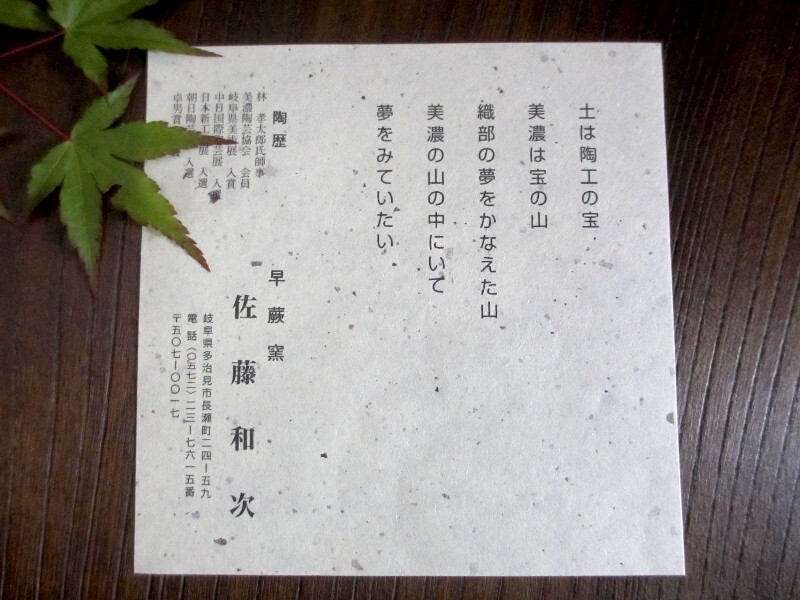 土は陶工の宝
美濃は宝の山
織部の夢をかなえた山
美濃の山の中にいて
夢をみていたい
陶歴
林 孝太郎氏師事
美濃陶芸協会 会員
岐阜県美術展 入賞
中日国際陶芸展 入選
日本新工芸展 入選
朝日陶芸展 入選
卓男賞
早蕨窯
佐藤和次
岐阜県多治見市長瀬町二四ー五九
電話(〇五七二)二三ー七六一五番
〒五〇七ー〇〇一七